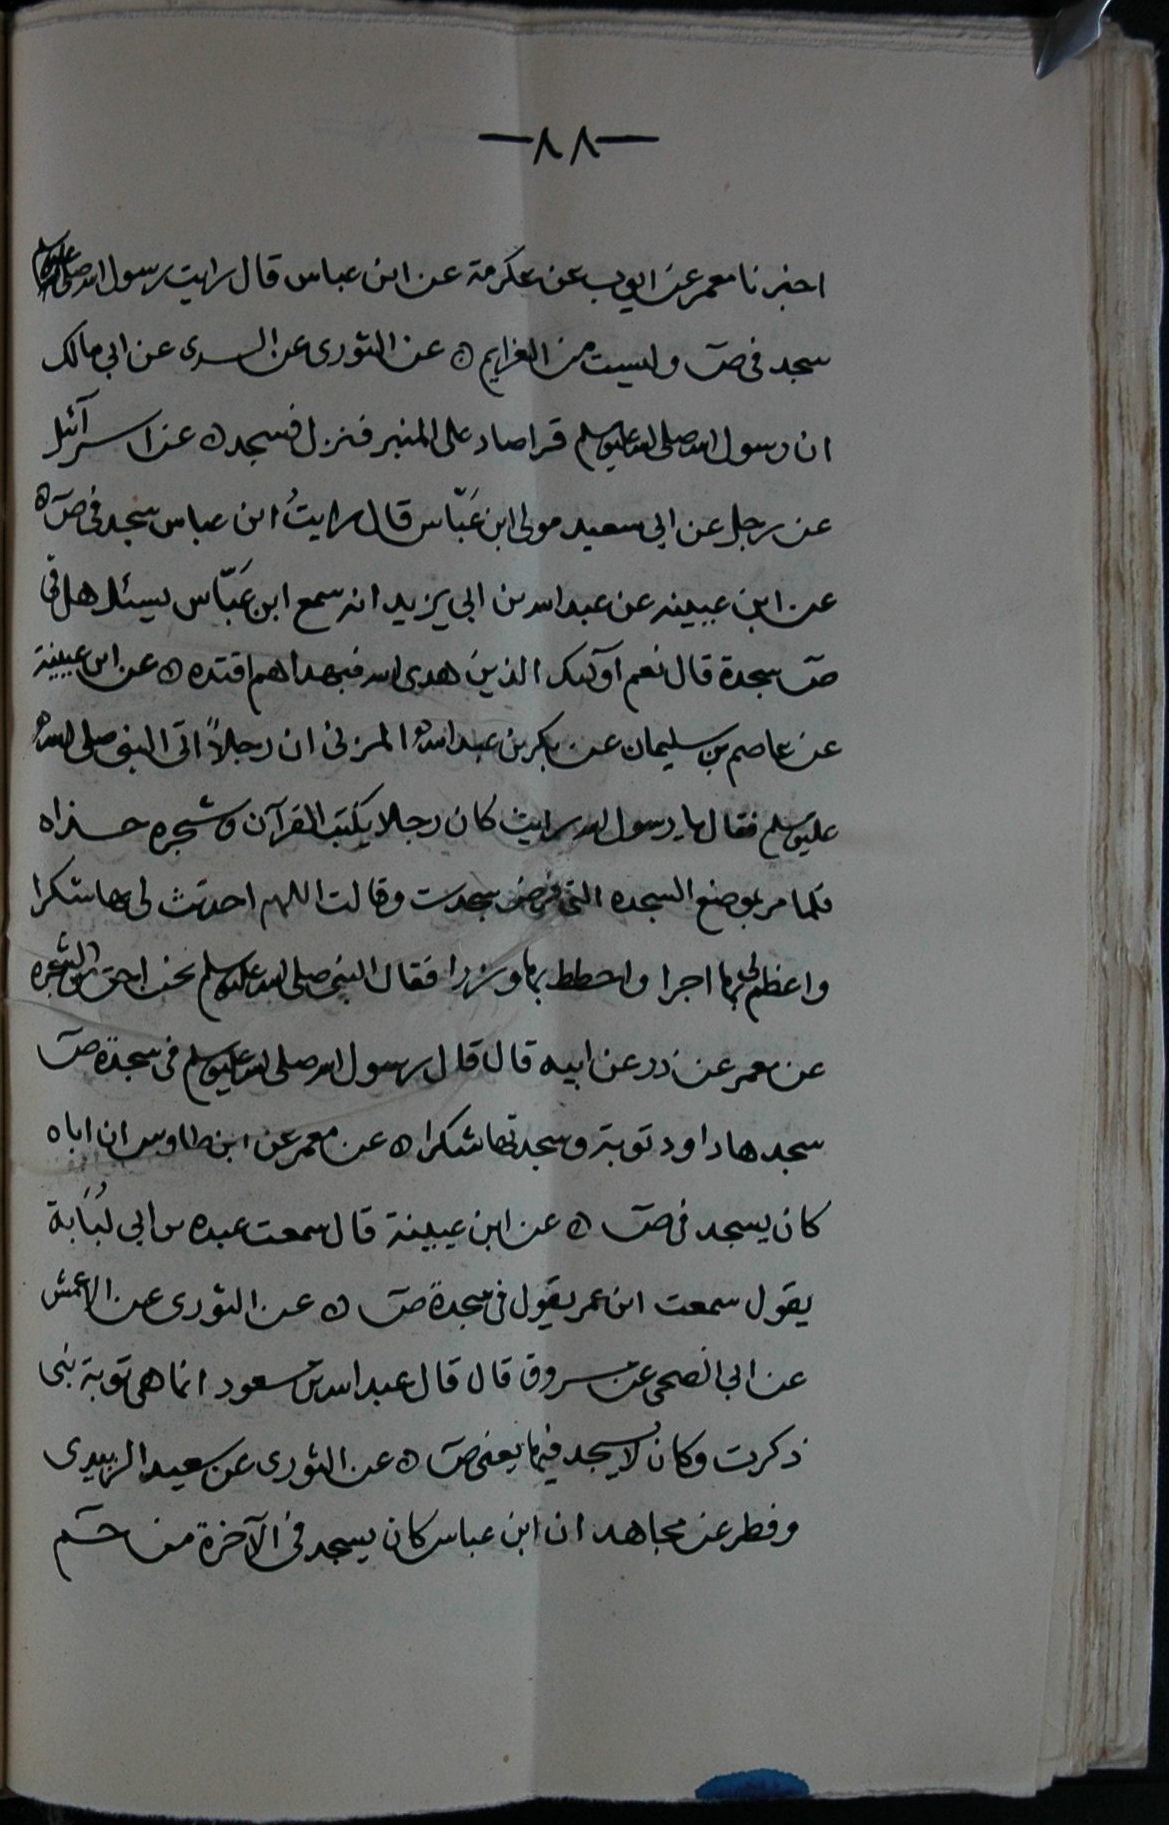 —٨٨—
اخبرنا معمر عن ايوب عن عكرمة عن ابن عباس قال رايت رسول الله صلى الله عليه وسلم
سجد فى صٓ وليست من العزايم ٥ عن الثورى عن السدى عن ابى مالك
ان رسول الله صلى الله عليه وسلم قرا صاد على المنبر فنزل فسجد ٥ عن اسرآئيل
عن رجل عن ابى سعيد مولى ابن عَبّاس قال رايتُ ابن عباس سجد فى صٓ ٥
عن ابن عيينه عن عبد الله بن ابى يزيد انه سمع ابن عَبّاس يسئل هل فى
صٓ سجدة قال نعم اوٓلئك الذين هدى الله فبهداهم اقتده ٥ عن ابن عيينة
عن عاصم بن سليمان عن بكر بن عبد الله المزنى ان رجلاً اتى النبى صلى الله
عليه وسلم فقال يا رسول الله رايت كان رجلا يكتب القرآن وشجره حذاه
فلما مر بموضع السجده التى فى صٓ سجدت وقالت اللهم احدث لى بها شكرا
واعظم لى بها اجرا واحطط بها وزرا فقال النبى صلى الله عليه وسلم نحن احق من الشجره
عن معمر عن ذر عن ابيه قال قال رسول الله صلى الله عليه وسلم فى سجدة صٓ
سجدها داود توبة وسجدتها شكرا ٥ عن معمر عن ابن طاوس ان اباه
كان يسجد فى صٓ ٥ عن ابن عيينة قال سمعت عبده بن ابى لُبَابة
يقول سمعت ابن عمر يقول فى سجدة صٓ ٥ عن الثورى عن الاعمش
عن ابى الضحى عن مسروق قال قال عبد الله بن مسعود انما هى توبة نبى
ذكرت وكان لا يسجد فيها يعنى صٓ ٥ عن الثورى عن سعيد الزبيدى
وفطر عن مجاهد ان ابن عباس كان يسجد فى الآخرة من حٓم